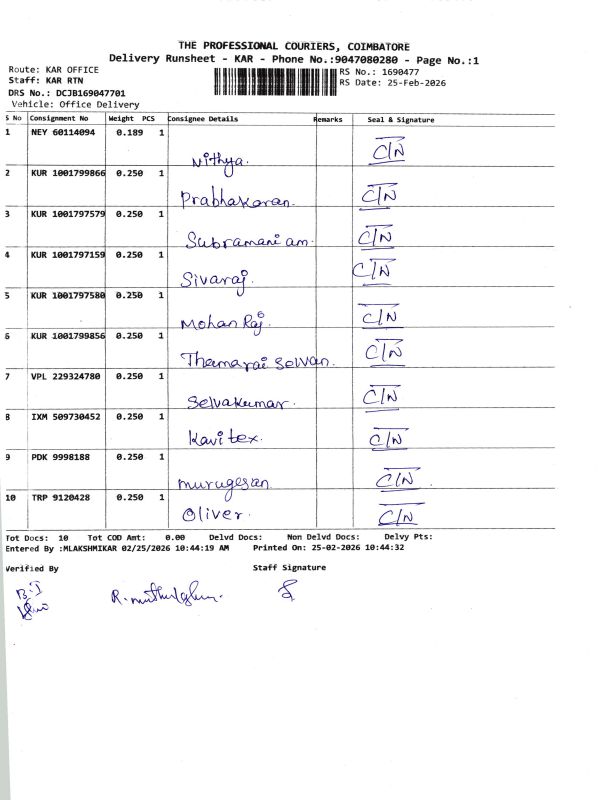 THE PROFESSIONAL COURIERS, COIMBATORE
Delivery Runsheet - KAR - Phone No.:9047080280 - Page No.:1
Route: KAR OFFICE
Staff: KAR RTN
DRS No.: DCJB169047701
Vehicle: Office Delivery
RS No.: 1690477
RS Date: 25-Feb-2026
S No Consignment No Weight PCS Consignee Details Remarks Seal & Signature
1 NEY 60114094 0.189 1 Nithya. C/N
2 KUR 1001799866 0.250 1 Prabhakaran. C/N
3 KUR 1001797579 0.250 1 Subramaniam. C/N
4 KUR 1001797159 0.250 1 Sivaraj. C/N
5 KUR 1001797580 0.250 1 Mohan Raj. C/N
6 KUR 1001799856 0.250 1 Thamarai Selvan. C/N
7 VPL 229324780 0.250 1 Selvakumar. C/N
8 IXM 509730452 0.250 1 Kavi tex. C/N
9 PDK 9998188 0.250 1 murugesan C/N
10 TRP 9120428 0.250 1 Oliver. C/N
Tot Docs: 10 Tot COD Amt: 0.00 Delvd Docs: Non Delvd Docs: Delvy Pts:
Entered By :MLAKSHMIKAR 02/25/2026 10:44:19 AM Printed On: 25-02-2026 10:44:32
Verified By Staff Signature